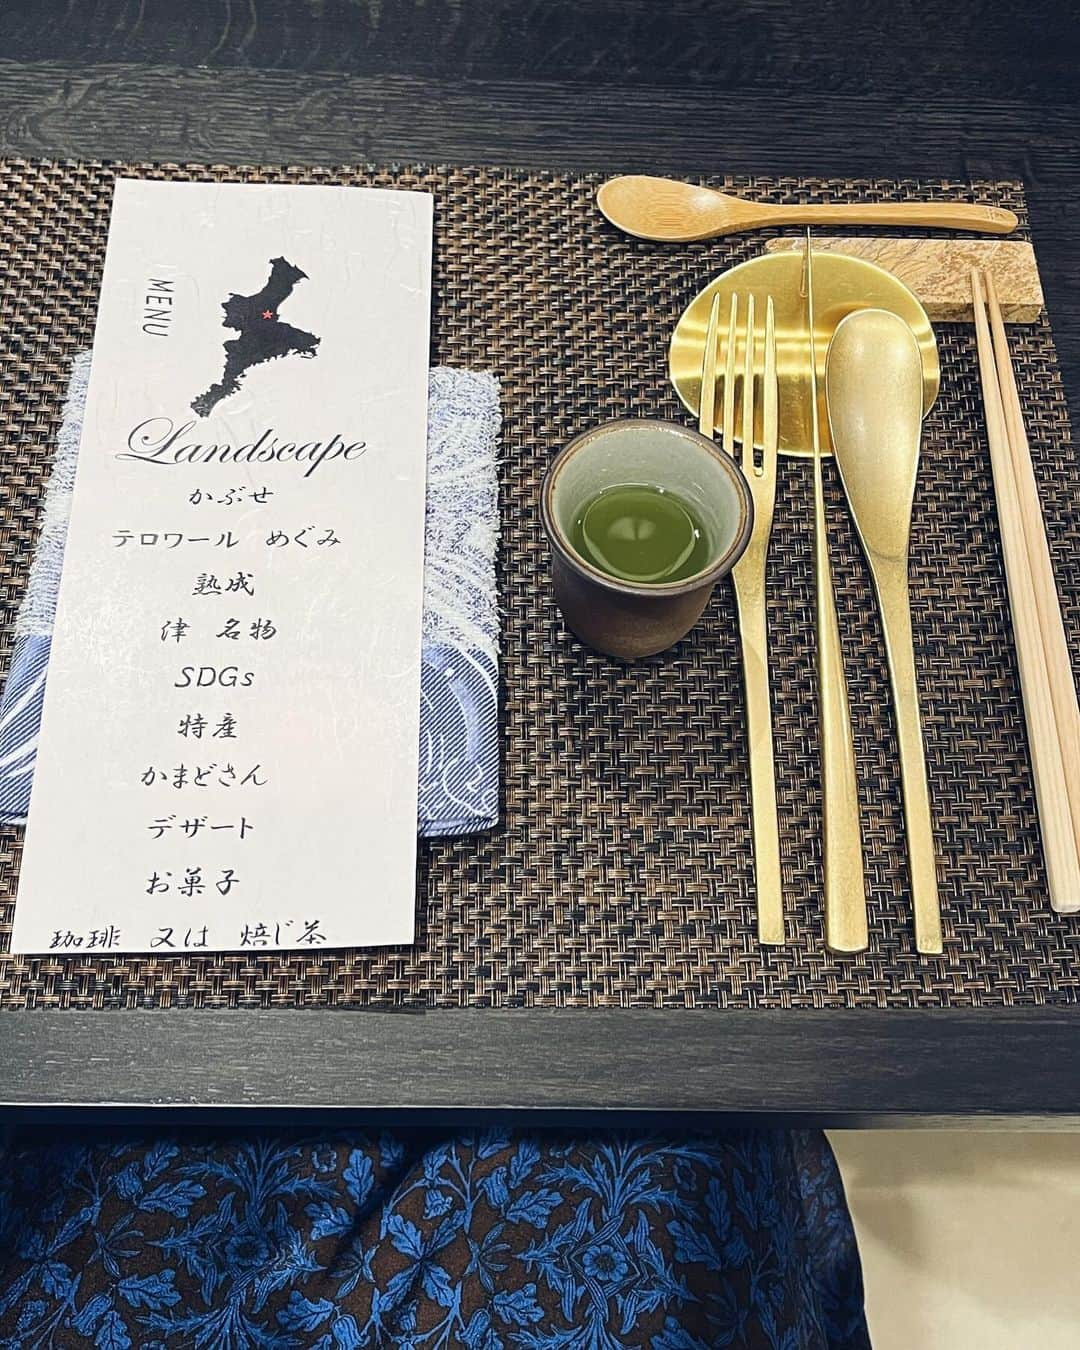 MENU
Landscape
かぶせ
テロワール めぐみ
熟成
津 名物
SDGs
特産
かまどさん
デザート
お菓子
珈琲 又は 焙じ茶